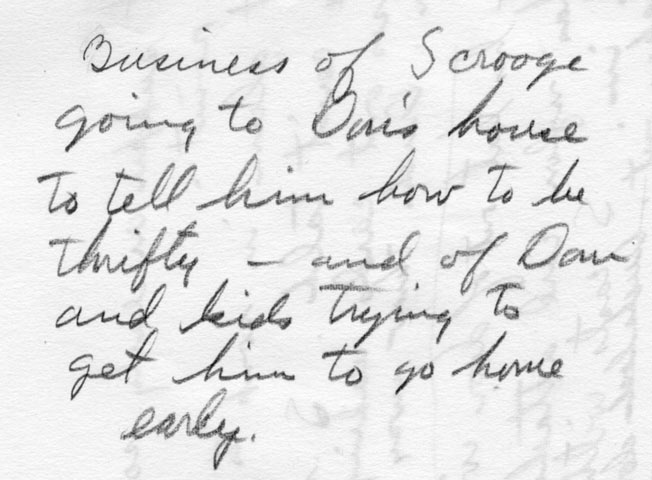 Business of Scrooge
going to Don's house
to tell him how to be
thrifty – and of Don
and kids trying to
get him to go home
early.